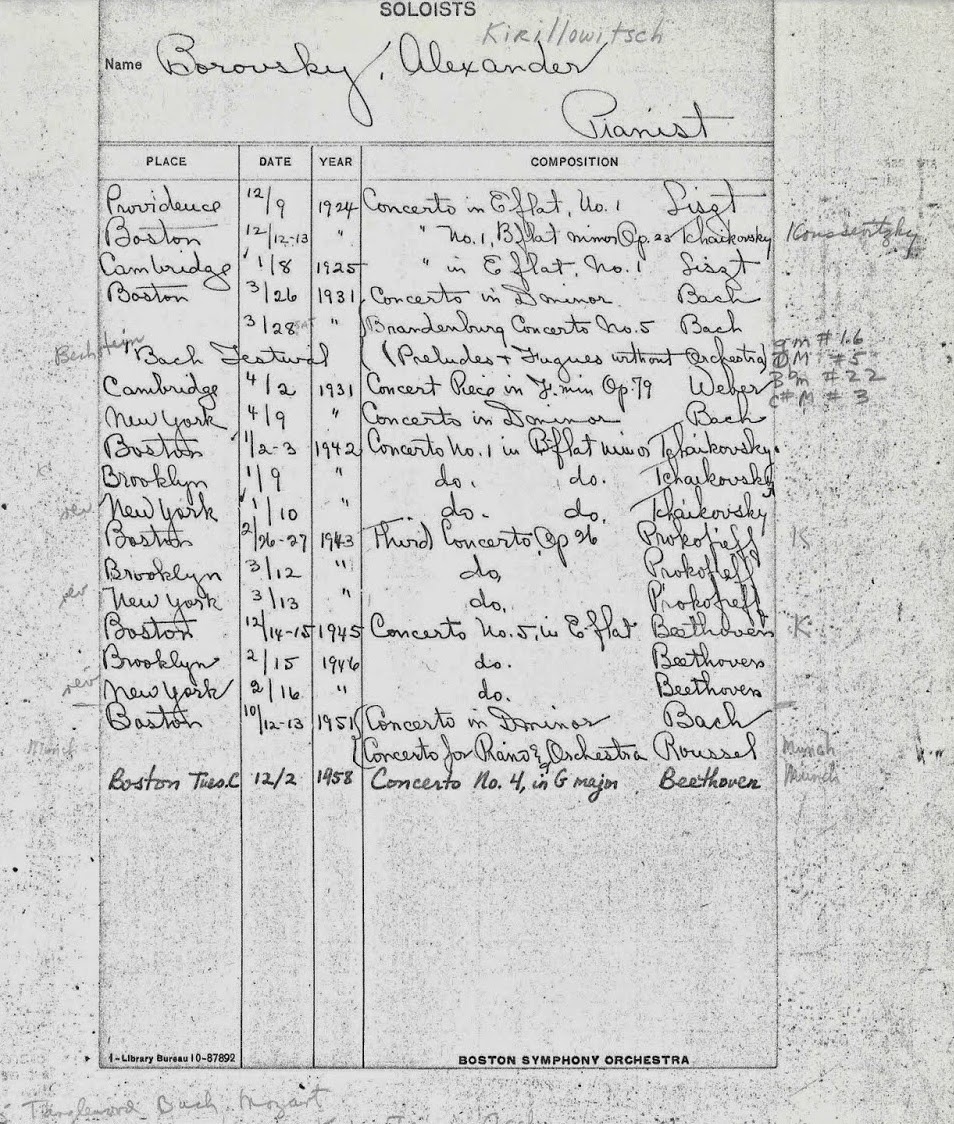 SOLOISTS
Kirillowitsch
Name Borovsky, Alexander
Pianist
PLACE DATE YEAR COMPOSITION
Providence 12/9 1924 Concerto in E flat, No. 1 Liszt
Boston 12/12-13 " " No. 1, B flat minor Op. 23 Tchaikovsky Koussevitzky
Cambridge 1/8 1925 " in E flat, No. 1 Liszt
Boston 3/26 1931 Concerto in D minor Bach
3/28 SAT " Brandenburg Concerto No. 5 Bach
Bechstein "Bach Festival" (Preludes + Fugues without Orchestra) gm #16
DM #5
Cambridge 4/2 1931 Concert Piece in F. min Op. 79 Weber Bbm #22
C#M #3
New York 4/9 " Concerto in D minor Bach
Boston 1/2-3 1942 Concerto No. 1 in B flat minor Tchaikovsky
Brooklyn 1/9 " do. do. Tchaikovsky
rev New York 1/10 " do. do. Tchaikovsky
Boston 2/26-27 1943 Third Concerto, Op 26 Prokofieff K
Brooklyn 3/12 " do. Prokofieff
rev New York 3/13 " do. Prokofieff
Boston 12/14-15 1945 Concerto No. 5, in E flat Beethoven K
Brooklyn 2/15 1946 do. Beethoven
rev New York 2/16 " do. Beethoven
Boston 10/12-13 1951 Concerto in D minor Bach
Concerto for Piano & Orchestra Roussel Munch
Boston Tues. C 12/2 1958 Concerto No. 4, in G major Beethoven Munch
1-Library Bureau 10-87892 BOSTON SYMPHONY ORCHESTRA
Tanglewood Bach Mozart